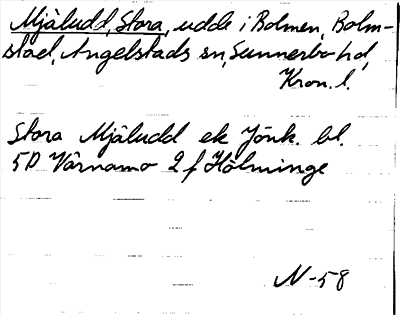 Mjäludd, Stora, udde i Bolmen, Bolm-
stad, Angelstads sn, Sunnerbo hd,
Kron. l.
Stora Mjäludd ek Jönk. bl.
5D Värnamo 2 f Hölminge
N-58